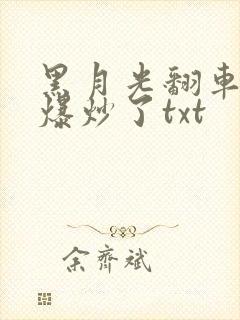 黑月光翻車
爆炒了txt
余齊斌